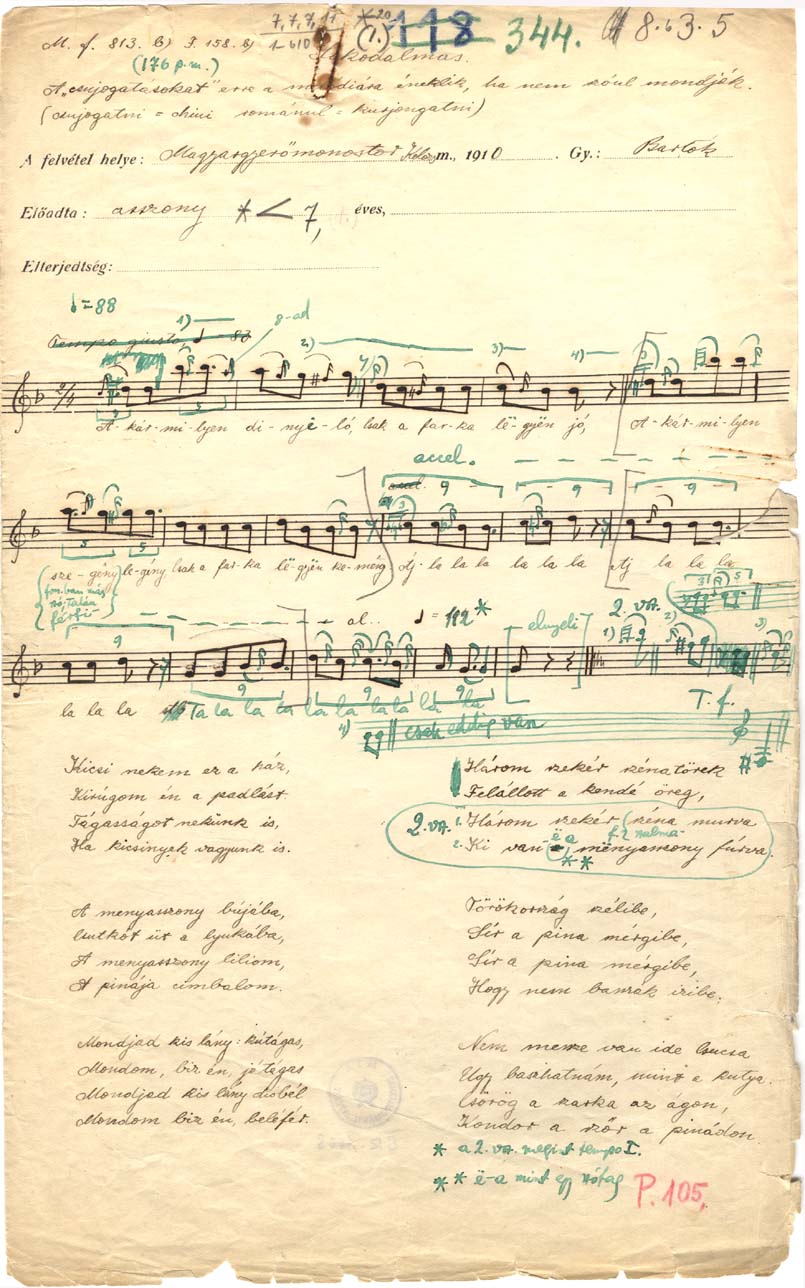 7, 7, 7, 11
1-610
*20
(1.)
118
344.
8.63.5
M. f. 813. b) F. 158. b)
(176 p.m.)
Lakodalmas.
A „csujogatásokat" erre a melódiára éneklik, ha nem szóul mondják.
(csujogatni = chiui románul = kurjongatni)
A felvétel helye: Magyargyerőmonostor Kolozs m., 1910 Gy.: Bartók
Előadta: asszony * < 7, éves,
Elterjedtség:
♩=88
Tempo giusto ♩ 88
8-ad
1) 2) 3) 4)
A-kár-mi-lyen di-nye-ló, Csak a far-ka lë-gyën jó, A-kár-mi-lyen
accel.
9 9 9
sze-gény le-gény, Csak a far-ka lë-gyën ke-mény Áj-la la la la la la Áj la la la
al.. ♩ = 112 *
elnyeli
2. va.
1) 2) 3)
la la la Ta la la la la la la la la la
T. f.
4) csak eddig van
Kicsi nekem ez a ház,
Kirúgom én a padlást.
Tágasságot nekünk is,
Ha kicsinyek vagyunk is.
Három szekér szénatörek
Felállott a kendé öreg,
2. va. 1. Három szekér széna murva
2. Ki van ë a mënyasszony fúrva.
* *
A menyasszony bújába,
Csutkót üt a lyukába,
A menyasszony liliom,
A pinája cimbalom.
Törökország szélibe,
Sír a pina mérgibe,
Sír a pina mérgibe,
Hogy nem basszák izibe.
Mondjad kis lány: kútágas,
Mondom, biz én, jó tágas
Mondjad kis lány dióbél
Mondom biz én, beléfér.
Nem messze van ide Csucsa
Ugy baszhatnám, mint a kutya.
Csörög a szarka az ágon,
Kondor a szőr a pinádon.
* a 2. va. megint tempo I.
* * ë-a mint egy szótag
P. 105,